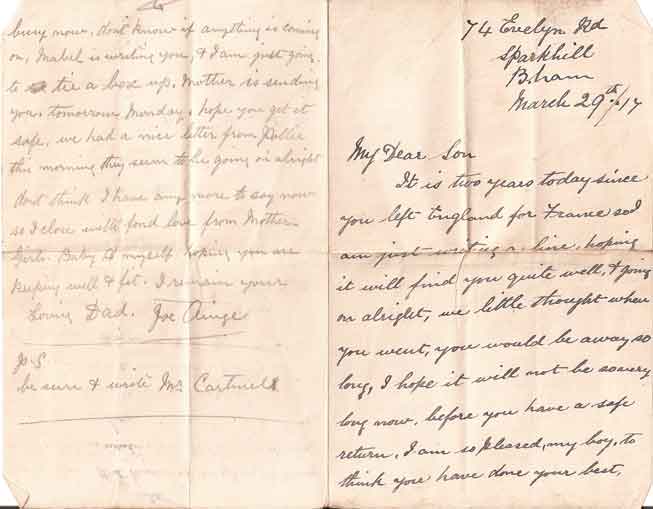 74 Evelyn Rd
Sparkhill
B.ham
March 29th/17
My Dear Son
It is two years today since
you left England for France so I
am just writing a line, hoping
it will find you quite well, & going
on alright, we little thought when
you went, you would be away so
long, I hope it will not be so very
long now, before you have a safe
return, I am so pleased, my boy, to
think you have done your best,
busy now, dont know if anything is coming
on, Mabel is writing you, & I am just going
to tie a box up. Mother is sending
you, tomorrow Monday, hope you get it
safe, we had a nice letter from
this morning they seem to be going on alright
dont think I have any more to say now
so I close with fond love from Mother
Girls. Baby & myself hoping you are
keeping well & fit. I remain your
Loving Dad. Joe Ainge
P.S
be sure & write Mrs Cartmell